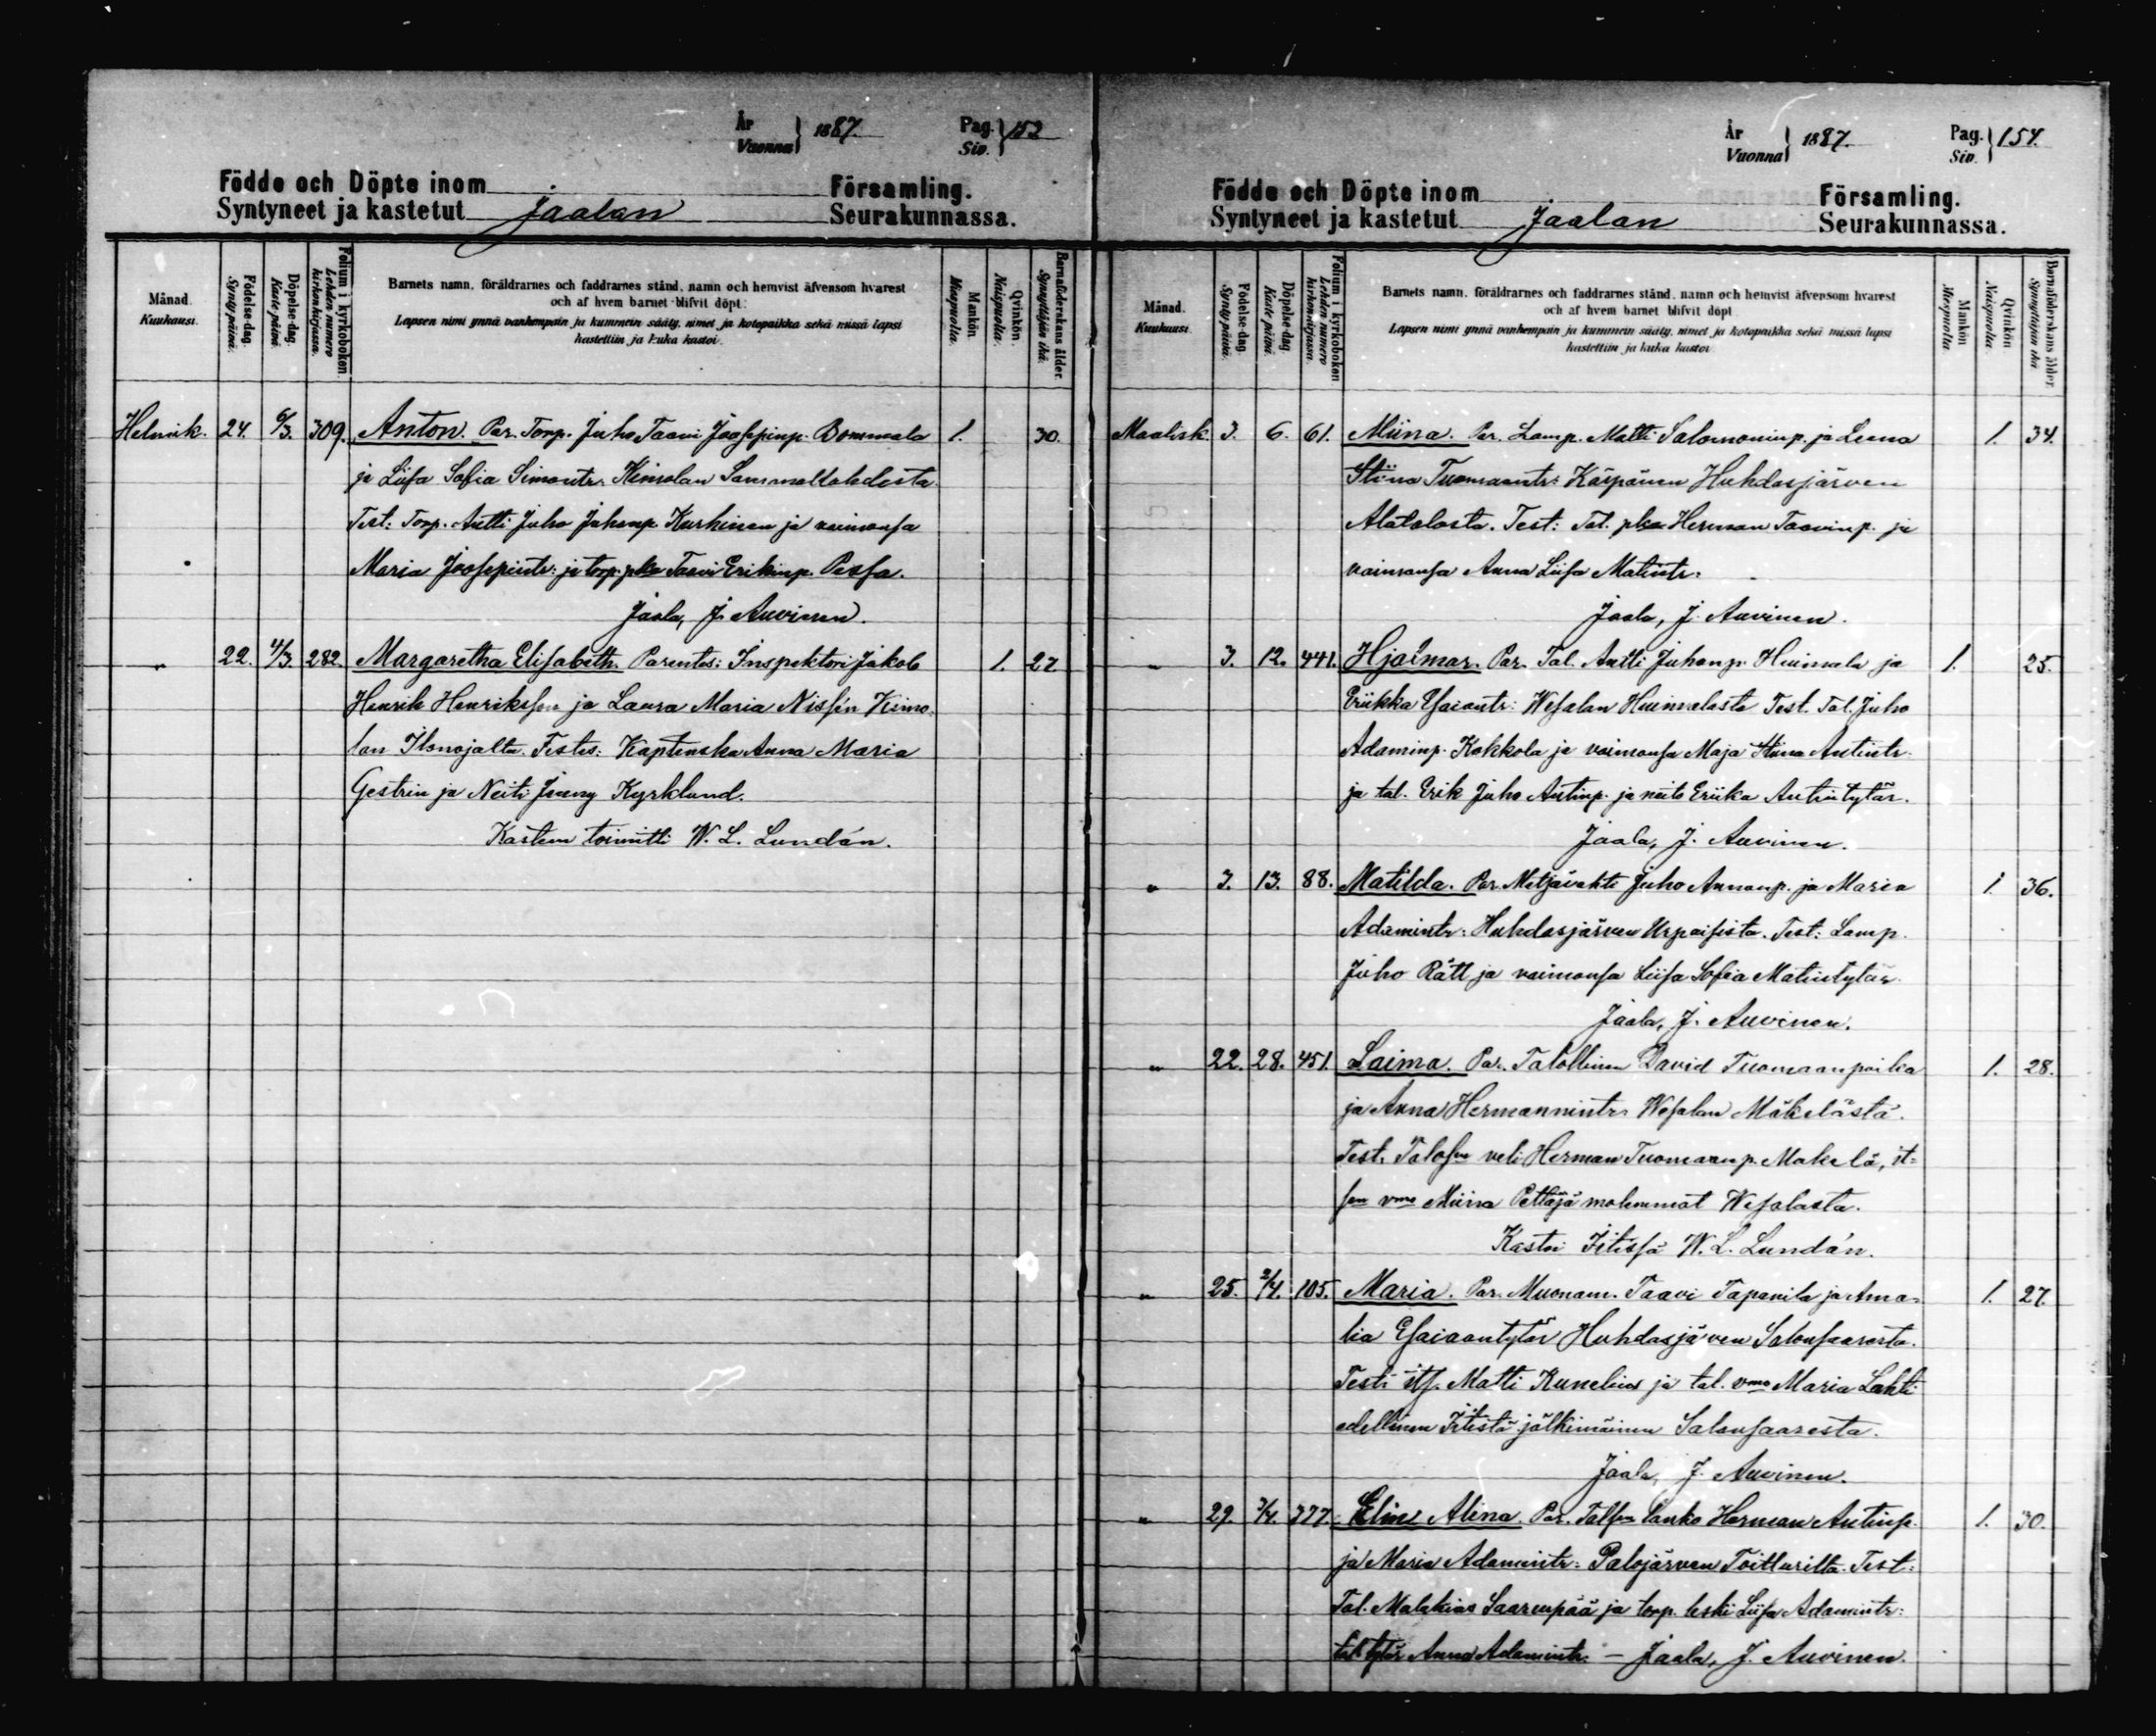 År
Vuonna } 1887. Pag.
Siv. } 152
Födde och Döpte inom Församling.
Syntyneet ja kastetut Jaalan Seurakunnassa.
Månad. Kuukausi.
Födelse-dag. Synty-päivä.
Döpelse-dag. Kaste-päivä.
Folium i kyrkoboken. Lehden numero kirkonkirjassa.
Barnets namn, föräldrarnes och faddrarnes stånd, namn och hemvist äfvensom hvarest
och af hvem barnet blifvit döpt.
Lapsen nimi ynnä vanhempain ja kummein sääty, nimet ja kotopaikka sekä missä lapsi
kastettiin ja kuka kastoi.
Mankön. Miespuolia.
Qvinkön. Naispuolia.
Barnaföderskans ålder. Synnyttäjän ikä.
Helmik. 24. 6/3. 309. Anton. Par. Torp. Juho Taavi Joosepinp. Bommala 1. 30.
ja Liisa Sofia Simontr. Kimolan Sammallahdesta
Test: Torp. Antti Juho Juhonp. Kurhinen ja vaimonsa
Maria Joosepintr: ja torp. pka Taavi Erikinp. Pessa.
Jaala, J. Auvinen.
" 22. 4/3. 282. Margaretha Elisabeth. Parentes: Inspektori Jakob 1. 27
Henrik Henriksson ja Laura Maria Nissén Kimo-
lan Ilonojalta. Testes: Kaptenska Anna Maria
Gestrin ja Neiti Jenny Kyrklund.
Kasteen toimitti W. L. Lundán.
År
Vuonna } 1887. Pag.
Siv. } 154.
Födde och Döpte inom Församling.
Syntyneet ja kastetut Jaalan Seurakunnassa.
Månad. Kuukausi.
Födelse-dag. Synty-päivä.
Döpelse-dag. Kaste-päivä.
Folium i kyrkoboken. Lehden numero kirkonkirjassa.
Barnets namn, föräldrarnes och faddrarnes stånd, namn och hemvist äfvensom hvarest
och af hvem barnet blifvit döpt.
Lapsen nimi ynnä vanhempain ja kummein sääty, nimet ja kotopaikka sekä missä lapsi
kastettiin ja kuka kastoi.
Mankön. Miespuolia.
Qvinkön. Naispuolia.
Barnaföderskans ålder. Synnyttäjän ikä.
Maalisk. 3. 6. 61. Miina. Par. Lamp. Matti Salomoninp. ja Leena 1. 34.
Stiina Tuomaantr: Käspäinen Huhdasjärven
Alatalosta. Test: Tal. pka Herman Taavinp. ja
vaimonsa Anna Liisa Matintr.
Jaala, J. Auvinen.
" 3. 12. 441. Hjalmar. Par. Tal. Antti Juhonp. Huimala ja 1. 25.
Eriikka Esaiantr: Wesalan Huimalasta Test. Tal. Juho
Adaminp. Kokkola ja vaimonsa Maja Stiina Antintr.
ja tal. Erik Juho Antinp. ja neito Eriika Antintytär.
Jaala, J. Auvinen.
" 3. 13. 88. Matilda. Par. Metsävahti Juho Annanp. ja Maria 1. 36.
Adamintr: Huhdasjärven Urpaisista. Test: Lamp.
Juho Rätt ja vaimonsa Liisa Sofia Matintytär.
Jaala, J. Auvinen.
" 22. 28. 451. Laima. Par. Talollinen David Tuomaanpoika 1. 28.
ja Anna Hermannintr. Wesalan Mäkelästä.
Test. Talosen veli Herman Tuomaanp. Makelä, it-
sen vmo Miina Pettäjä molemmat Wesalasta.
Kastoi Iitissä W. L. Lundán.
" 25. 2/4. 105. Maria. Par. Muonam. Taavi Tapanila ja Ama- 1. 27.
lia Esaiaantytär Huhdasjärven Salonsaaresta.
Test: its. Matti Kunelius ja tal. vmo Maria Lahti
edellinen Iitistä jälkimäinen Salonsaaresta.
Jaala, J. Auvinen.
" 29. 3/4. 377. Elin Alina. Par. Talsen Lanko Herman Antinp. 1. 30.
ja Maria Adamintr: Palojärven Toitturilta. Test:
Tal. Malakias Saarenpää ja torp. leski Liisa Adamintr:
tal. tytär Anna Adamintr. – Jaala, J. Auvinen.